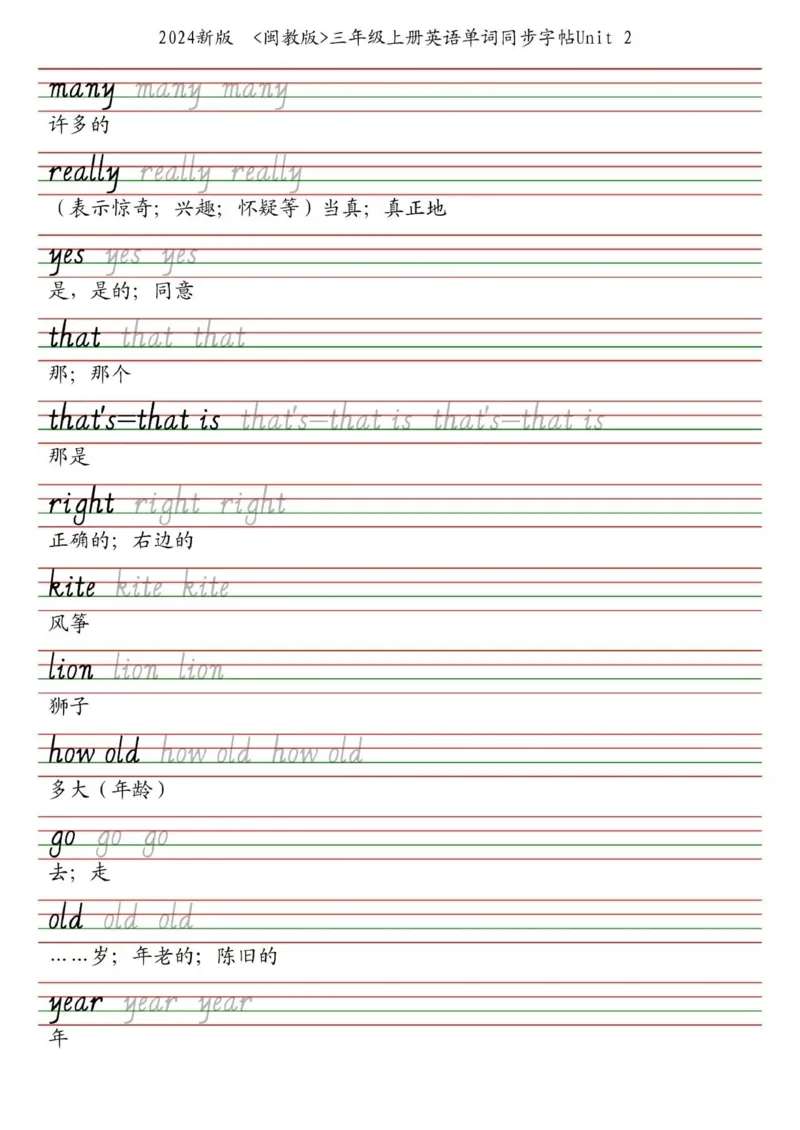 2024新版 <闽教版>三年级上册英语单词同步字帖Unit 2
many many many
许多的
really really really
（表示惊奇；兴趣；怀疑等）当真；真正地
yes yes yes
是，是的；同意
that that that
那；那个
that's=that is that's=that is that's=that is
那是
right right right
正确的；右边的
kite kite kite
风筝
lion lion lion
狮子
how old how old how old
多大（年龄）
go go go
去；走
old old old
……岁；年老的；陈旧的
year year year
年